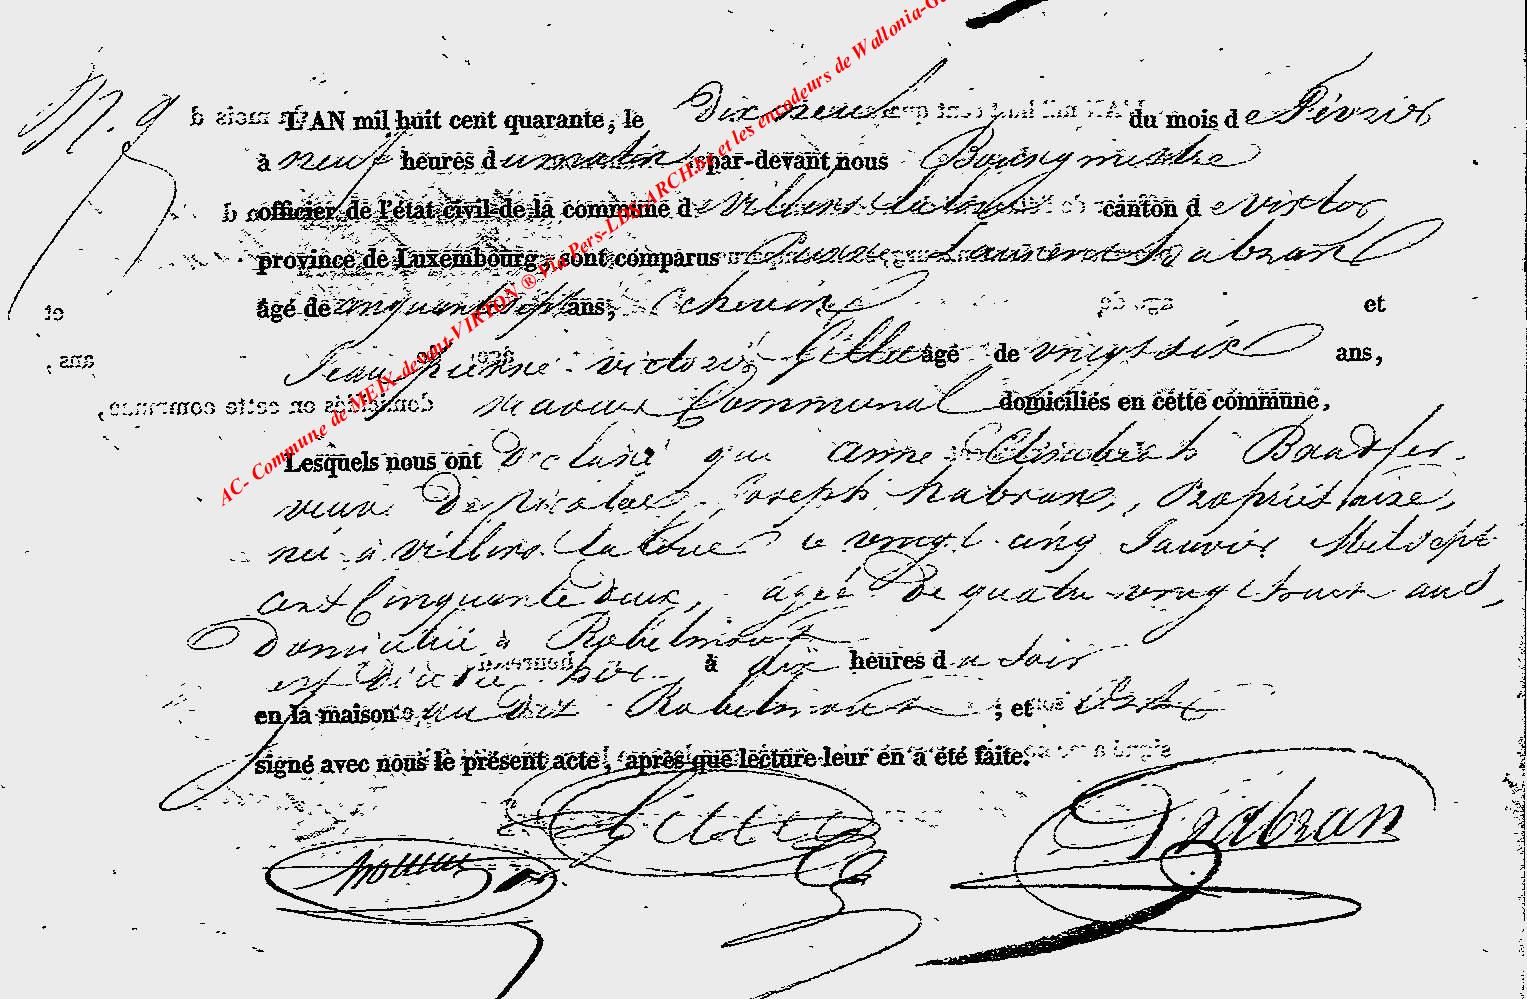 N. 9
L'AN mil huit cent quarante, le dix neuf du mois de Février
à neuf heures du matin par-devant nous Bourgmestre
officier de l'état civil de la commune de Villers la loue canton de virton
province de Luxembourg, sont comparus Laurent habran
âgé de cinquante sept ans, Echevin et
Jean pierre victoire Gillet âgé de vingt six ans,
Communal domiciliés en cette commune,
Lesquels nous ont déclaré que anne Elisabeth
veuve de nicolas Joseph habran, Propriétaire,
née à villers la loue le vingt cinq Janvier Mil sept
cent Cinquante deux, âgée de quatre vingt ans,
domiciliée à Robelmont
est décédée à dix heures du soir
en la maison Robelmont ; et
signé avec nous le présent acte, après que lecture leur en a été faite.
Gillet
habran
AC- Commune de MEIX-devant-VIRTON ® Via Pers-LDS-ARCH.be et les encodeurs de Wallonia-G